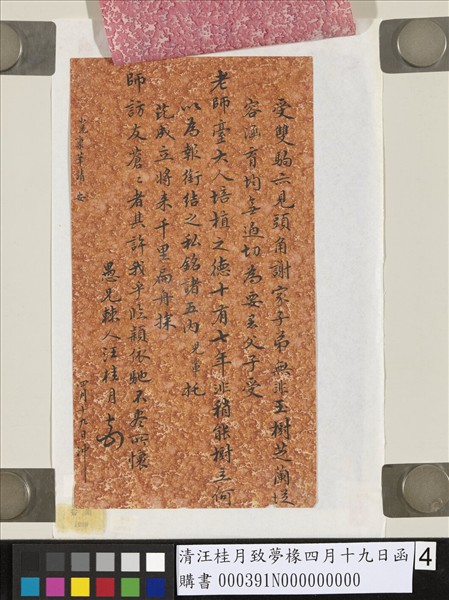 受雙駒亦見頭角謝家子弟無非玉樹芝蘭從
容涵育均無迫切為要矣父子受
老師臺大人培植之德十有七年非稍能樹立何
以為報銜結之私銘諸五內兄弟托
託成立將來千里扁舟採
師訪友蒼蒼者其許我乎臨穎依馳不盡所懷
愚兄棘人汪桂月
四月十九日沖
小兒 筆請安
清汪桂月致夢橡四月十九日函
購書 000391N000000000
4